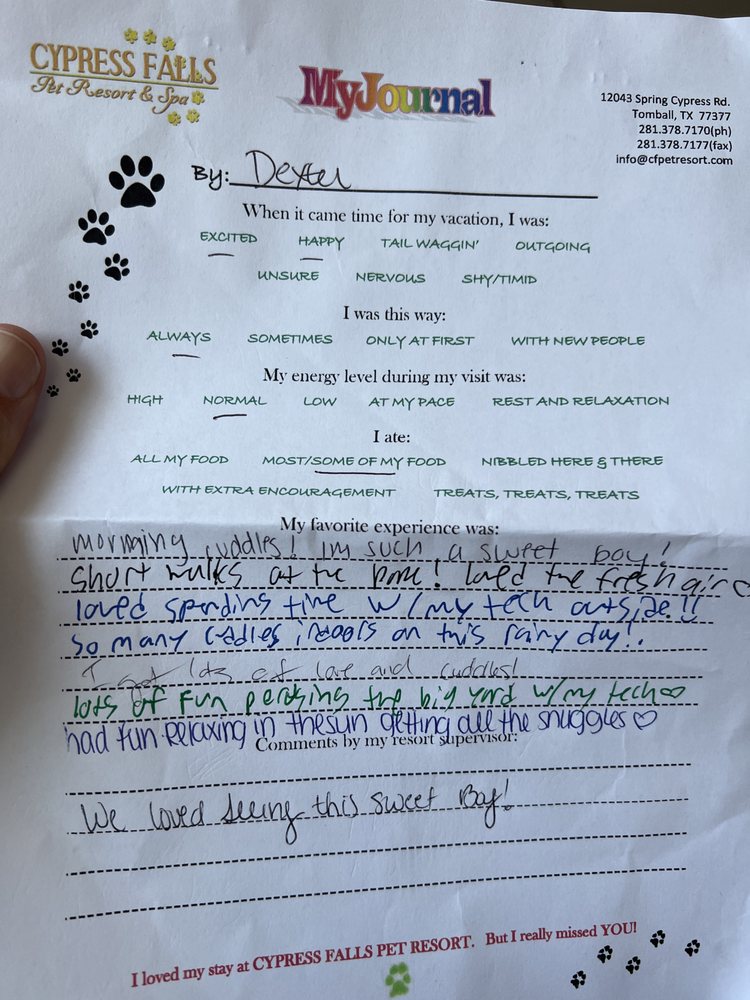 CYPRESS FALLS
Pet Resort & Spa
MyJournal
12043 Spring Cypress Rd.
Tomball, TX 77377
281.378.7170(ph)
281.378.7177(fax)
info@cfpetresort.com
By: Dexter
When it came time for my vacation, I was:
EXCITED HAPPY TAIL WAGGIN' OUTGOING
UNSURE NERVOUS SHY/TIMID
I was this way:
ALWAYS SOMETIMES ONLY AT FIRST WITH NEW PEOPLE
My energy level during my visit was:
HIGH NORMAL LOW AT MY PACE REST AND RELAXATION
I ate:
ALL MY FOOD MOST/SOME OF MY FOOD NIBBLED HERE & THERE
WITH EXTRA ENCOURAGEMENT TREATS, TREATS, TREATS
My favorite experience was:
morming cuddles! im such a sweet boy!
Short walks at the park! loved the fresh air♡
loved spending time w/my tech outside!!
So many cuddles indoors on this rainy day!.
I got lots of love and cuddles!
lots of fun the big yard w/my tech♡
had fun relaxing in the sun getting all the snuggles ♡
Comments by my resort supervisor:
We loved seeing this sweet Boy!
I loved my stay at CYPRESS FALLS PET RESORT. But I really missed YOU!